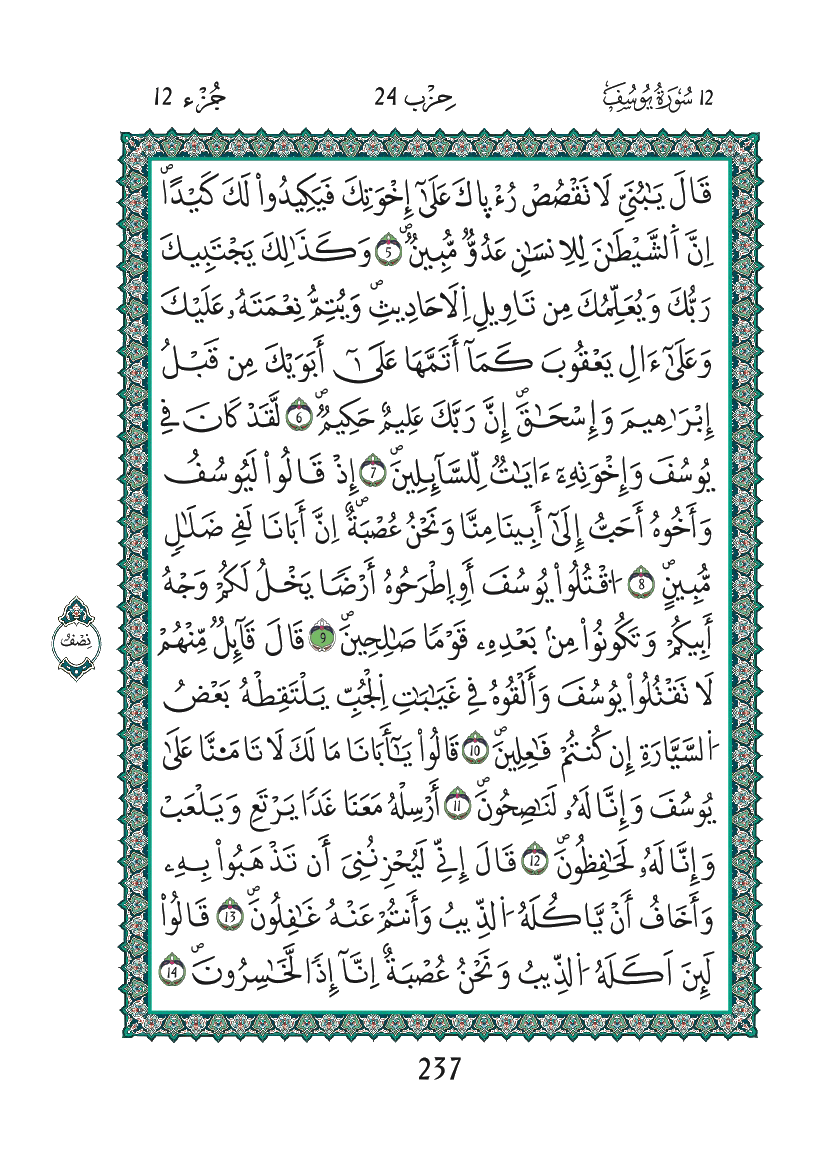 12 سُورَةُ يُوسُفَ
حِزْب 24
جُزْء 12
قَالَ يَٰبُنَيِّ لَا تَقْصُصْ رُءْيٖاكَ عَلَىٰٓ إِخْوَتِكَ فَيَكِيدُواْ لَكَ كَيْدًاۖ
اِنَّ اَ۬لشَّيْطَٰنَ لِلِانسَٰنِ عَدُوّٞ مُّبِينٞۖ 5 وَكَذَٰلِكَ يَجْتَبِيكَ
رَبُّكَ وَيُعَلِّمُكَ مِن تَاوِيلِ اِ۬لَاحَادِيثِۖ وَيُتِمُّ نِعْمَتَهُۥ عَلَيْكَ
وَعَلَىٰٓ ءَالِ يَعْقُوبَ كَمَآ أَتَمَّهَا عَلَىٰٓ أَبَوَيْكَ مِن قَبْلُ
إِبْرَٰهِيمَ وَإِسْحَٰقَۖ إِنَّ رَبَّكَ عَلِيمٌ حَكِيمٞۖ 6 لَّقَدْ كَانَ فِے
يُوسُفَ وَإِخْوَتِهِۦٓ ءَايَٰتٞ لِّلسَّآئِلِينَۖ 7 إِذْ قَالُواْ لَيُوسُفُ
وَأَخُوهُ أَحَبُّ إِلَىٰٓ أَبِينَا مِنَّا وَنَحْنُ عُصْبَةٌۖ اِنَّ أَبَانَا لَفِے ضَلَٰلٖ
مُّبِينٍۖ 8 اُ۟قْتُلُواْ يُوسُفَ أَوِ اِ۪طْرَحُوهُ أَرْضٗا يَخْلُ لَكُمْ وَجْهُ
أَبِيكُمْ وَتَكُونُواْ مِنۢ بَعْدِهِۦ قَوْمٗا صَٰلِحِينَۖ 9 قَالَ قَآئِلٞ مِّنْهُمْ
لَا تَقْتُلُواْ يُوسُفَ وَأَلْقُوهُ فِے غَيَٰبَٰتِ اِ۬لْجُبِّ يَلْتَقِطْهُ بَعْضُ
اُ۬لسَّيَّارَةِ إِن كُنتُمْ فَٰعِلِينَۖ 10 قَالُواْ يَٰٓأَبَانَا مَا لَكَ لَا تَامَ۬نَّا عَلَىٰ
يُوسُفَ وَإِنَّا لَهُۥ لَنَٰصِحُونَۖ 11 أَرْسِلْهُ مَعَنَا غَدٗا يَرْتَعِ وَيَلْعَبْ
وَإِنَّا لَهُۥ لَحَٰفِظُونَۖ 12 قَالَ إِنِّے لَيُحْزِنُنِيَ أَن تَذْهَبُواْ بِهِۦ
وَأَخَافُ أَنْ يَّاكُلَهُ اُ۬لذِّيبُ وَأَنتُمْ عَنْهُ غَٰفِلُونَۖ 13 قَالُواْ
لَئِنَ اَكَلَهُ اُ۬لذِّيبُ وَنَحْنُ عُصْبَةٌ اِنَّآ إِذٗا لَّخَٰسِرُونَۖ 14
نِصْفُ
237